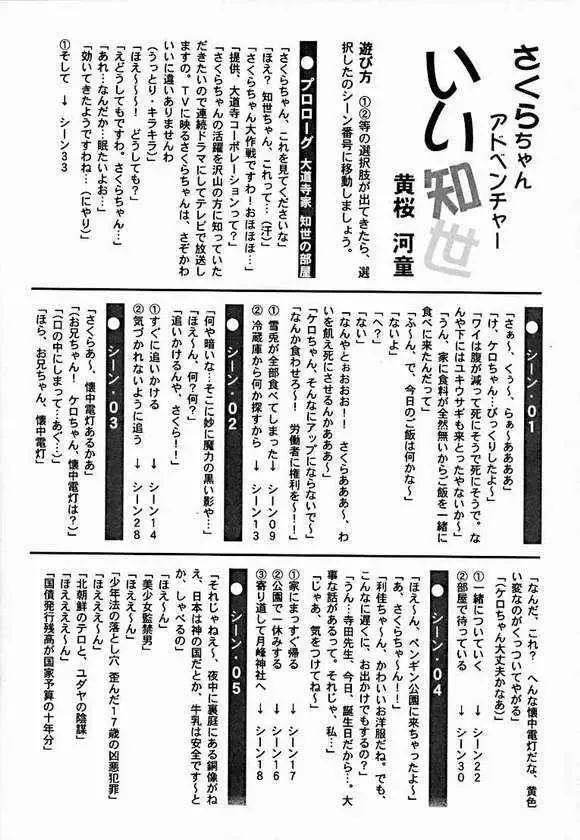 さくらちゃん
アドベンチャー
いい知世
黄桜 河童
遊び方 ①②等の選択肢が出てきたら、選
択したのシーン番号に移動しましょう。
●プロローグ 大道寺家 知世の部屋
「さくらちゃん、これを見てくださいな」
「ほえ？ 知世ちゃん、これって…(汗)」
「さくらちゃん大作戦ですわ！おほほほ…」
「提供、大道寺コーポレーションって？」
「さくらちゃんの活躍を沢山の方に知っていた
だきたいので連続ドラマにしてテレビで放送し
ますの。TVに映るさくらちゃんは、さぞかわ
いいに違いありませんわ
(うっとり・キラキラ)」
「ほえ〜〜〜！ どうしても？」
「えどうしてもですわ。さくらちゃん…」
「あれ…なんだか…眠たいよお…」
「効いてきたようですわね…(にやり)」
①そして → シーン33
●シーン・01
「さぁ〜、くぅ〜、らぁ〜ああああ」
「け、ケロちゃん…びっくりしたよ〜」
「ワイは腹が減って死にそうで死にそうで。な
んや下にはユキウサギも来とったやないか〜」
「うん、家に食料が全然無いからご飯を一緒に
食べに来たんだって」
「ふ〜ん、で、今日のご飯は何かな〜」
「ないよ」
「へ？」
「ない」
「なんやとぉおおお！ さくらあああ〜、わ
いを飢え死にさせるんかあああ〜」
「ケロちゃん、そんなにアップにならないで〜」
「なんか食わせろ〜！ 労働者に権利を〜！！」
①雪兎が全部食べてしまった→ シーン09
②冷蔵庫から何か探すから → シーン13
●シーン・02
「何や暗いな…そこに妙に魔力の黒い影や…」
「ほえ〜ん、何？何？」
「追いかけるんや、さくら！！」
①すぐに追いかける → シーン14
②気づかれないように追う → シーン28
●シーン・03
「さくらあ〜、懐中電灯あるかあ」
「(お兄ちゃん！ ケロちゃん、懐中電灯は？)」
「(口の中にしまって…あぐ…)」
「ほら、お兄ちゃん、懐中電灯」
「なんだ、これ？ へんな懐中電灯だな、黄色
い変なのがくっついてやがる」
「(ケロちゃん大丈夫かなあ)」
①一緒についていく → シーン22
②部屋で待っている → シーン30
●シーン・04
「ほえ〜ん、ペンギン公園に来ちゃったよ〜」
「あ、さくらちゃ〜ん！！」
「利佳ちゃ〜ん、かわいいお洋服だね。でも、
こんなに遅くに、お出かけでもするの？」
「うん…寺田先生、今日、誕生日だから…。大
事な話があるって。それじゃ、私…」
「じゃあ、気をつけてね〜」
①家にまっすぐ帰る → シーン17
②公園で一休みする → シーン16
③寄り道して月峰神社へ → シーン18
●シーン・05
「それじゃねえ〜、夜中に裏庭にある銅像がね
え、日本は神の国だとか、牛乳は安全です〜と
か、しゃべるの」
「ほえ〜ん」
「美少女監禁男」
「ほええ〜ん」
「少年法の落とし穴 歪んだ17歳の凶悪犯罪」
「ほえええ〜ん」
「北朝鮮のテロと、ユダヤの陰謀」
「ほええええ〜ん」
「国債発行残高が国家予算の十年分」